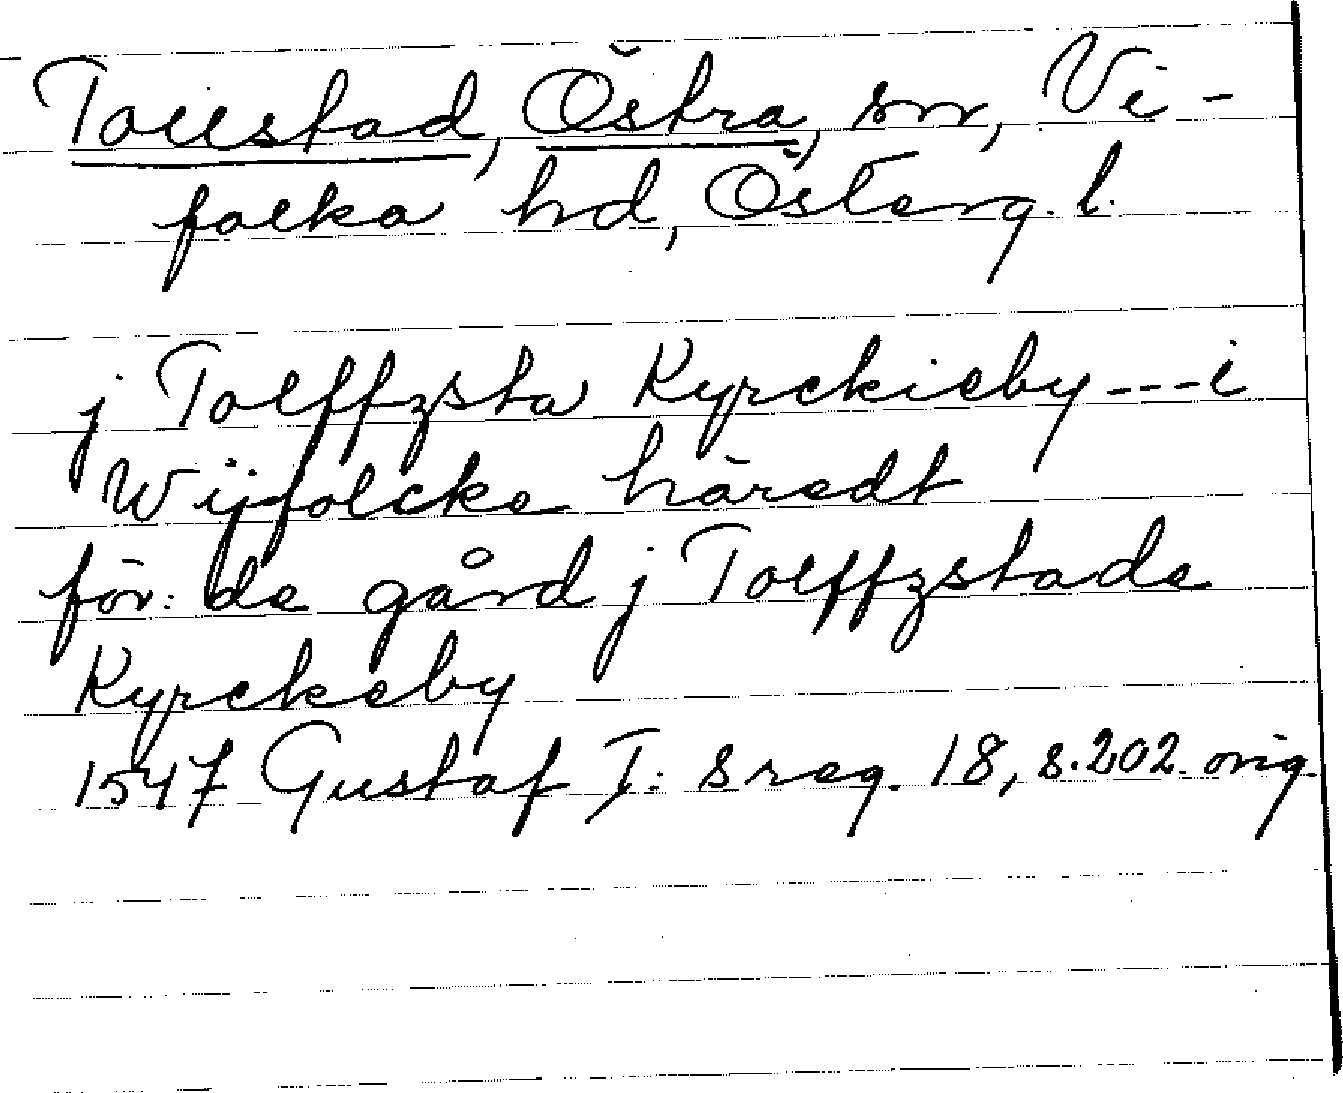 Tollstad, Östra, sn, Vi-
folka hd, Österg. l.
j Tolffzsta Kyrckieby---i
Wijfolcke häredt
för: de gård j Tolffzstade
Kyrckeby
1547 Gustaf I:s reg. 18, s. 202. orig.